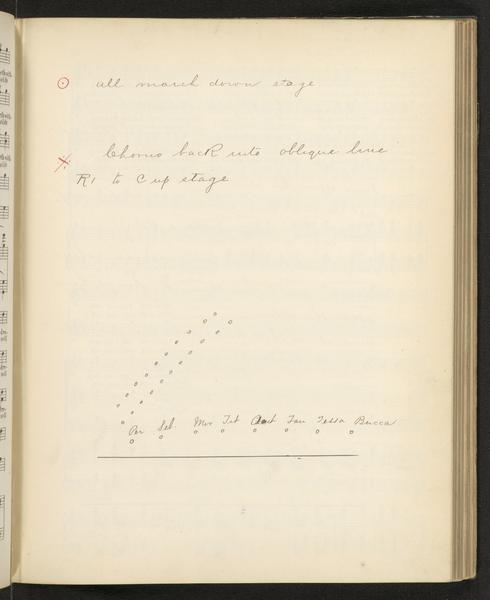 all march down stage
Chorus back into oblique line
R1 to C up stage
Per Sel. Mrs Tit Aut Fau Tessa Bucca